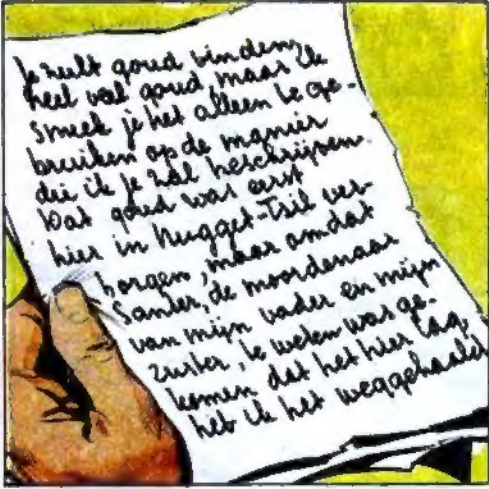 Je zult goud vinden,
heel veel goud, maar ik
smeek je het alleen te ge-
bruiken op de manier
die ik je zal beschrijven.
Dat goud was eerst
hier in Nugget-Tsil ver-
borgen, maar omdat
Santer, de moordenaar
van mijn vader en mijn
zuster, te weten was ge-
komen dat het hier lag,
heb ik het weggehaald